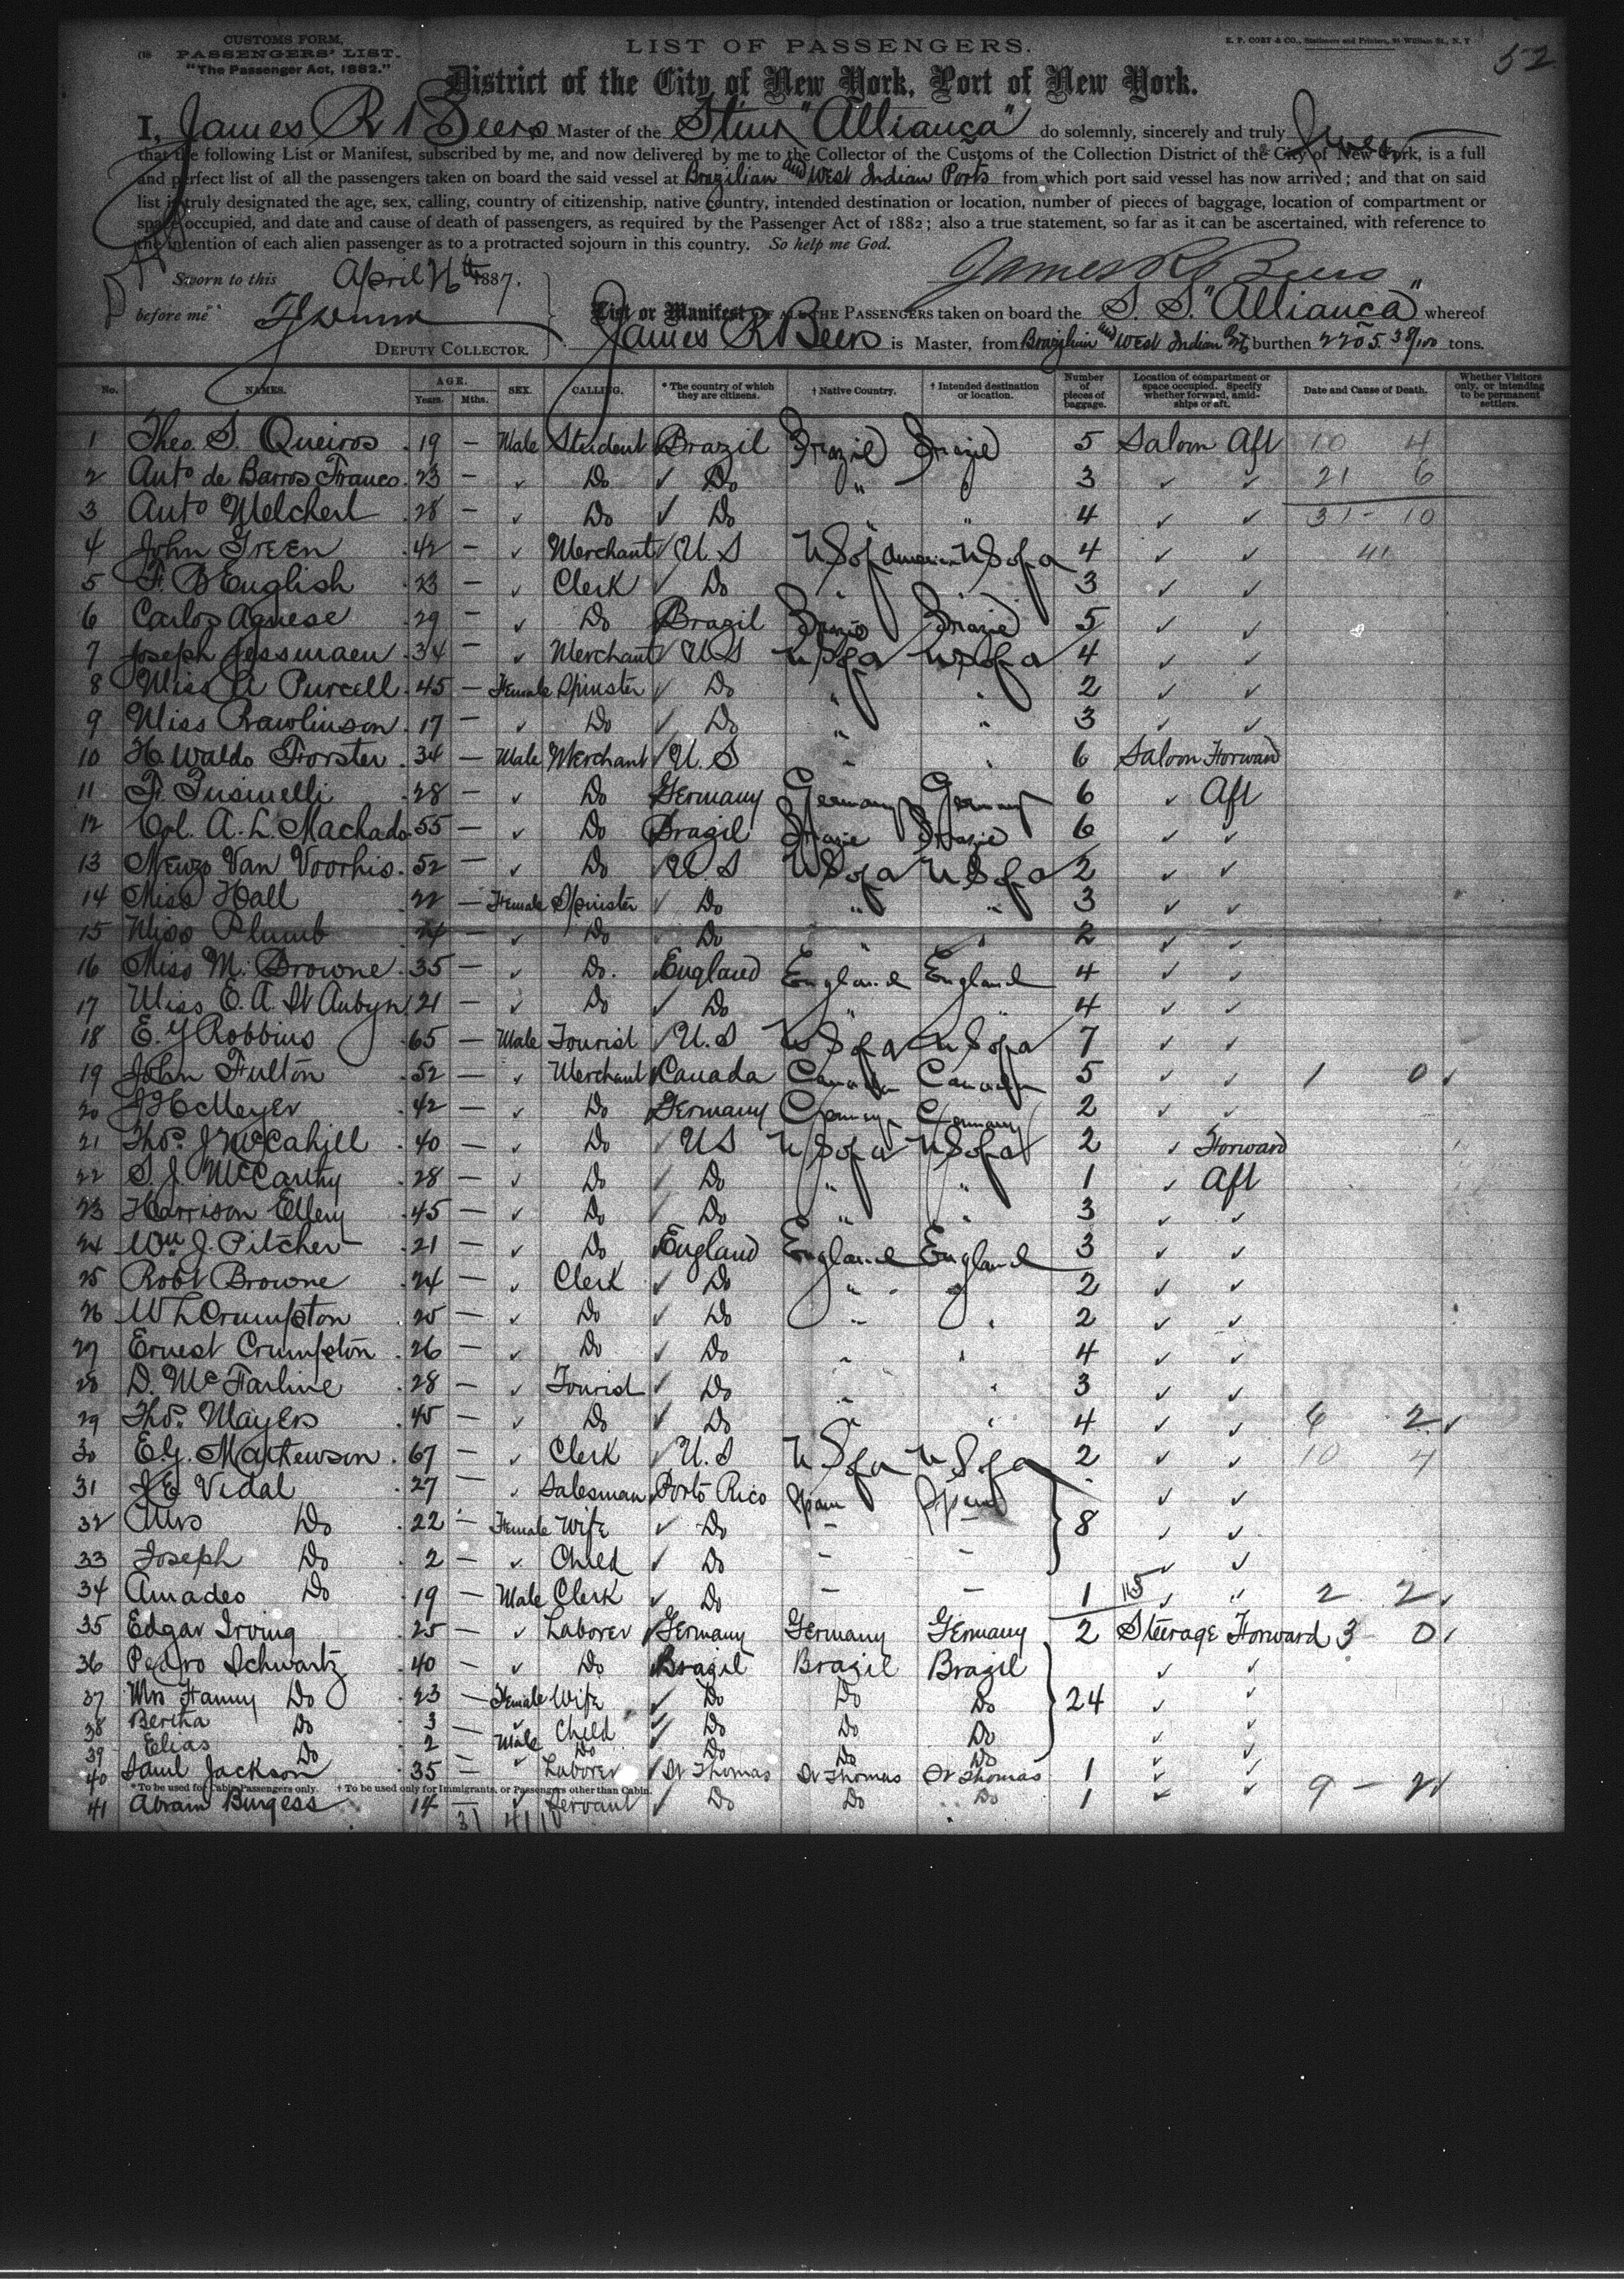 CUSTOMS FORM,
PASSENGERS' LIST.
"The Passenger Act, 1882."
LIST OF PASSENGERS.
E. P. COBY & CO., Stationers and Printers, 91 William St., N. Y
52
District of the City of New York, Port of New York.
I, James R Beers Master of the Stmr "Alliança" do solemnly, sincerely and truly Swear
that the following List or Manifest, subscribed by me, and now delivered by me to the Collector of the Customs of the Collection District of the City of New York, is a full
and perfect list of all the passengers taken on board the said vessel at Brazilian and West Indian Ports from which port said vessel has now arrived; and that on said
list is truly designated the age, sex, calling, country of citizenship, native country, intended destination or location, number of pieces of baggage, location of compartment or
space occupied, and date and cause of death of passengers, as required by the Passenger Act of 1882; also a true statement, so far as it can be ascertained, with reference to
the intention of each alien passenger as to a protracted sojourn in this country. So help me God.
Sworn to this April 26th 1887.
James R Beers
before me
DEPUTY COLLECTOR.
List or Manifest OF ALL THE PASSENGERS taken on board the S. S. "Alliança" whereof
James R Beers is Master, from Brazilian and West Indian Pts burthen 2205 38/100 tons.
No. NAMES. AGE. Years. Mths. SEX. CALLING. * The country of which they are citizens. † Native Country. † Intended destination or location. Number of pieces of baggage. Location of compartment or space occupied. Specify whether forward, amidships or aft. Date and Cause of Death. Whether Visitors only, or intending to be permanent settlers.
1 Theo. S. Queiros 19 – Male Student Brazil Brazil Brazil 5 Saloon Aft 10 4
2 Anto de Barros Franco 23 – ✓ Do ✓ Do " " 3 ✓ ✓ 21 6
3 Anto Melchert 28 – ✓ Do ✓ Do " " 4 ✓ ✓ 31 – 10
4 John Green 42 – ✓ Merchant ✓ U. S U S of America U S of a 4 ✓ ✓ 41
5 F. B English 23 – ✓ Clerk ✓ Do " " 3 ✓ ✓
6 Carlos Agnese 29 – ✓ Do Brazil Brazil Brazil 5 ✓ ✓
7 Joseph Jessmaen 34 – ✓ Merchant ✓ U S U S of a U S of a 4 ✓ ✓
8 Miss A Purcell 45 – Female Spinster ✓ Do " " 2 ✓ ✓
9 Miss Rawlinson 17 – ✓ Do ✓ Do " " 3 ✓ ✓
10 H. Waldo Forster 34 – Male Merchant ✓ U. S " " 6 Saloon Forward
11 F. Fusinelli 28 – ✓ Do Germany Germany Germany 6 ✓ Aft
12 Col. A. L. Machado 55 – ✓ Do Brazil Brazil Brazil 6 ✓ ✓
13 Menzo Van Voorhis 52 – ✓ Do ✓ U. S U S of a U S of a 2 ✓ ✓
14 Miss Hall 22 – Female Spinster ✓ Do " " 3 ✓ ✓
15 Miss Plumb 24 – ✓ Do Do " " 2 ✓ ✓
16 Miss M. Browne 35 – ✓ Do. England England England 4 ✓ ✓
17 Miss E. A. St Aubyn 21 – ✓ Do ✓ Do " " 4 ✓ ✓
18 E. Y Robbins 65 – Male Tourist ✓ U. S U S of a U S of a 7 ✓ ✓
19 John Fulton 52 – ✓ Merchant Canada Canada Canada 5 ✓ ✓ 1 0 ✓
20 J H Meyer 42 – ✓ Do Germany Germany Germany 2 ✓ ✓
21 Thos. J McCahill 40 – ✓ Do ✓ US U S of a U S of a 2 ✓ Forward
22 S. J McCarthy 28 – ✓ Do ✓ Do " " 1 ✓ Aft
23 Harrison Ellery 45 – ✓ Do ✓ Do " " 3 ✓ ✓
24 Wm J. Pitcher 21 – ✓ Do England England England 3 ✓ ✓
25 Robt Browne 24 – ✓ Clerk ✓ Do " " 2 ✓ ✓
26 W L Crumpton 25 – ✓ Do ✓ Do " " 2 ✓ ✓
27 Ernest Crumpton 26 – ✓ Do ✓ Do " " 4 ✓ ✓
28 D. McFarline 28 – ✓ Tourist ✓ Do " " 3 ✓ ✓
29 Thos. Mayers 45 – ✓ Do ✓ Do " " 4 ✓ ✓ 6 2 ✓
30 E. G. Mathewson 67 – ✓ Clerk ✓ U. S U S of a U S of a 2 ✓ ✓ 10 4
31 J E Vidal 27 – ✓ Salesman Porto Rico Spain Spain ✓ ✓
32 Mrs Do 22 – Female Wife ✓ Do – – 8 ✓ ✓
33 Joseph Do 2 – ✓ Child ✓ Do – – ✓ ✓
34 Amadeo Do 19 – Male Clerk ✓ Do – – 1 115 ✓ ✓ 2 2 ✓
35 Edgar Irving 25 – ✓ Laborer Germany Germany Germany 2 Steerage Forward 3 0 ✓
36 Pedro Schwartz 40 – ✓ Do Brazil Brazil Brazil ✓ ✓
37 Mrs Fanny Do 23 – Female Wife ✓ Do Do Do 24 ✓ ✓
38 Bertha Do 3 – ✓ Child ✓ Do Do Do ✓ ✓
39 Elias Do 2 – Male Do ✓ Do Do Do ✓ ✓
40 Saml Jackson 35 – ✓ Laborer ✓ St Thomas St Thomas St Thomas 1 ✓ ✓
* To be used for Cabin Passengers only. † To be used only for Immigrants, or Passengers other than Cabin.
41 Abram Burgess 14 – ✓ Servant ✓ Do Do Do 1 ✓ ✓ 9 – 2 ✓
31 41 10